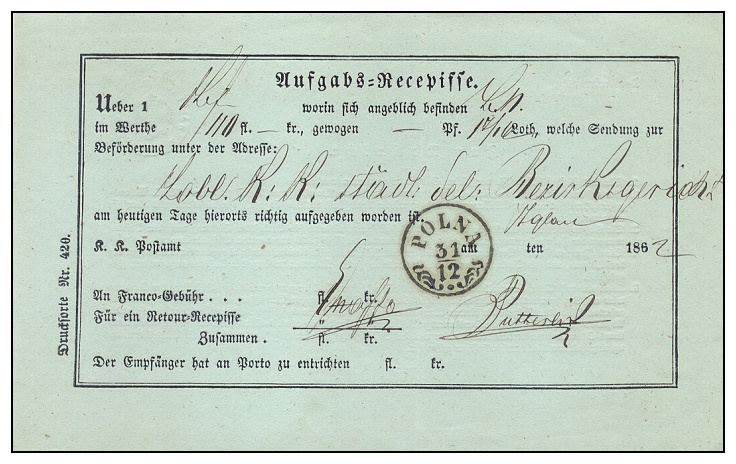 Aufgabs-Recepisse.
Ueber 1 worin sich angeblich befinden
im Werthe 110 fl. — kr., gewogen — Pf. Loth, welche Sendung zur
Beförderung unter der Adresse:
Löbl. K: K: städl. del: Bezirksgericht
Iglau
am heutigen Tage hierorts richtig aufgegeben worden ist.
K. K. Postamt am ten 1862
PÓLNA
31
12
An Franco-Gebühr . . . fl. kr.
Für ein Retour-Recepisse " "
Zusammen . fl. kr.
Der Empfänger hat an Porto zu entrichten fl. kr.
Drucksorte Nr. 420.